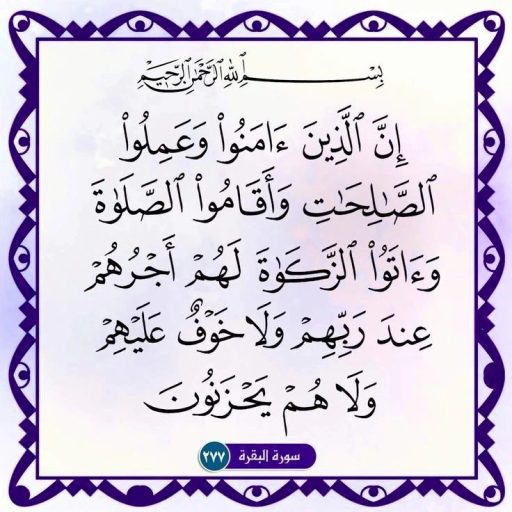 بِسْمِ ٱللَّهِ ٱلرَّحْمَٰنِ ٱلرَّحِيمِ
إِنَّ ٱلَّذِينَ ءَامَنُوا۟ وَعَمِلُوا۟
ٱلصَّٰلِحَٰتِ وَأَقَامُوا۟ ٱلصَّلَوٰةَ
وَءَاتَوُا۟ ٱلزَّكَوٰةَ لَهُمْ أَجْرُهُمْ
عِندَ رَبِّهِمْ وَلَا خَوْفٌ عَلَيْهِمْ
وَلَا هُمْ يَحْزَنُونَ
سورة البقرة ٢٧٧